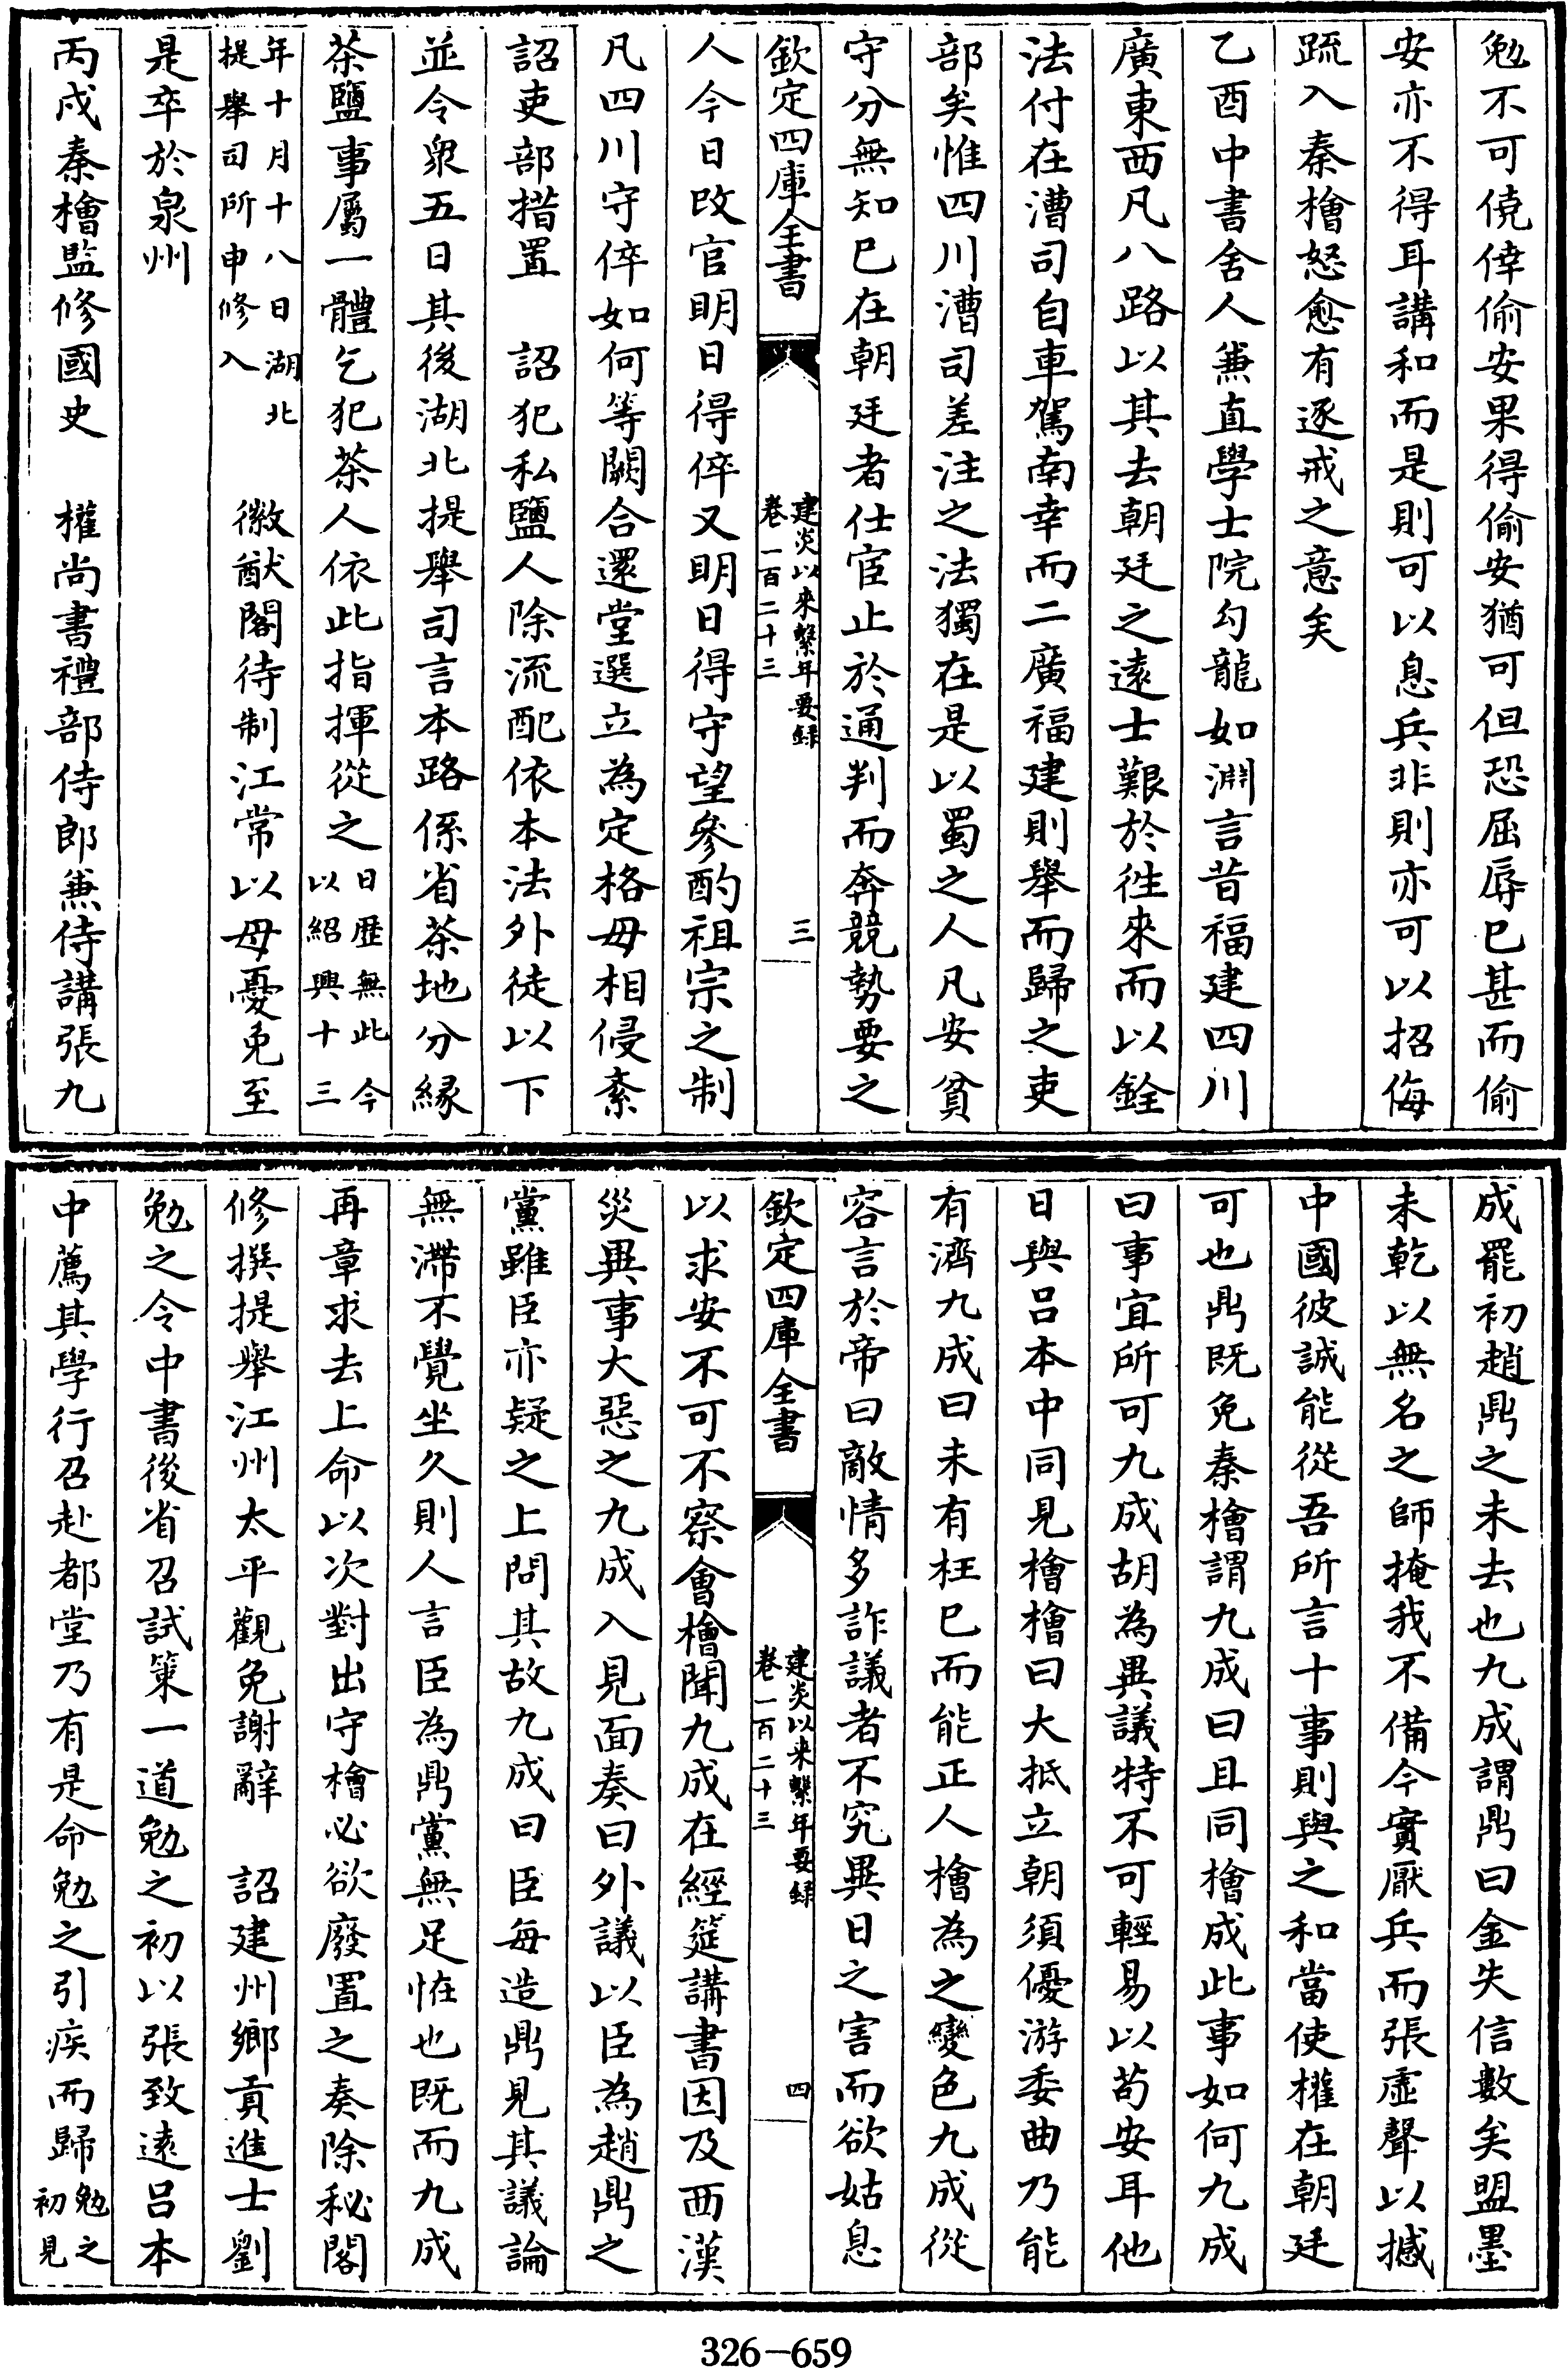 勉不可僥倖偷安果得偷安猶可但恐屈辱已甚而偷
安亦不得耳講和而是則可以息兵非則亦可以招侮
䟽入秦檜怒愈有逐戒之意矣
乙酉中書舍人兼直學士院勾龍如淵言昔福建四川
廣東西凡八路以其去朝廷之逺士艱於徃來而以銓
法付在漕司自車駕南幸而二廣福建則舉而歸之吏
部矣惟四川漕司差注之法獨在是以蜀之人凡安貧
守分無知已在朝廷者仕宦止於通判而奔競勢要之
欽定四庫全書
建炎以來繫年要録
卷一百二十三
三
人今日改官明日得倅又明日得守望參酌祖宗之制
凡四川守倅如何等闕合還堂選立為定格毋相侵紊
詔吏部措置 詔犯私鹽人除流配依本法外徒以下
並令衆五日其後湖北提舉司言本路係省茶地分縁
茶鹽事屬一體乞犯茶人依此指揮從之
日歴無此今
以紹興十三
年十月十八日湖北
提舉司所申修入
徽猷閣待制江常以母憂免至
是卒於泉州
丙戌秦檜監修國史 權尚書禮部侍郎兼侍講張九
成罷初趙鼎之未去也九成謂鼎曰金失信數矣盟墨
未乾以無名之師掩我不備今實厭兵而張虛聲以撼
中國彼誠能從吾所言十事則與之和當使權在朝廷
可也鼎既免秦檜謂九成曰且同檜成此事如何九成
曰事宜所可九成胡為異議特不可輕易以苟安耳他
日與吕本中同見檜檜曰大抵立朝須優游委曲乃能
有濟九成曰未有枉已而能正人檜為之變色九成從
容言於帝曰敵情多詐議者不究異日之害而欲姑息
欽定四庫全書
建炎以來繫年要録
卷一百二十三
四
以求安不可不察會檜聞九成在經筵講書因及西漢
災異事大惡之九成入見面奏曰外議以臣為趙鼎之
黨雖臣亦疑之上問其故九成曰臣每造鼎見其議論
無滯不覺坐久則人言臣為鼎黨無足怪也既而九成
再章求去上命以次對出守檜必欲廢置之奏除秘閣
修撰提舉江州太平觀免謝辭 詔建州鄉貢進士劉
勉之令中書後省召試策一道勉之初以張致逺吕本
中薦其學行召赴都堂乃有是命勉之引疾而歸
勉之
初見
326-659